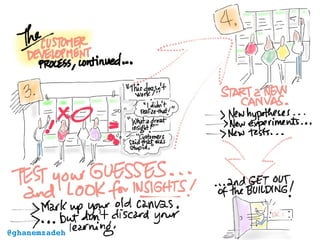 The
CUSTOMER
DEVELOPMENT
PROCESS, continued...
3.
"This doesn't
work!"
"I didn't
realize that!"
"What a great
insight!"
"Customers
said that was
stupid."
XO
TEST your GUESSES...
and LOOK for INSIGHTS!
> Mark up your old canvas.
> ... but don't discard your
learning.
4.
START a NEW
CANVAS.
> New hypotheses...
> New experiments...
> New tests...
...and GET OUT
of the BUILDING!
@ghanemzadeh